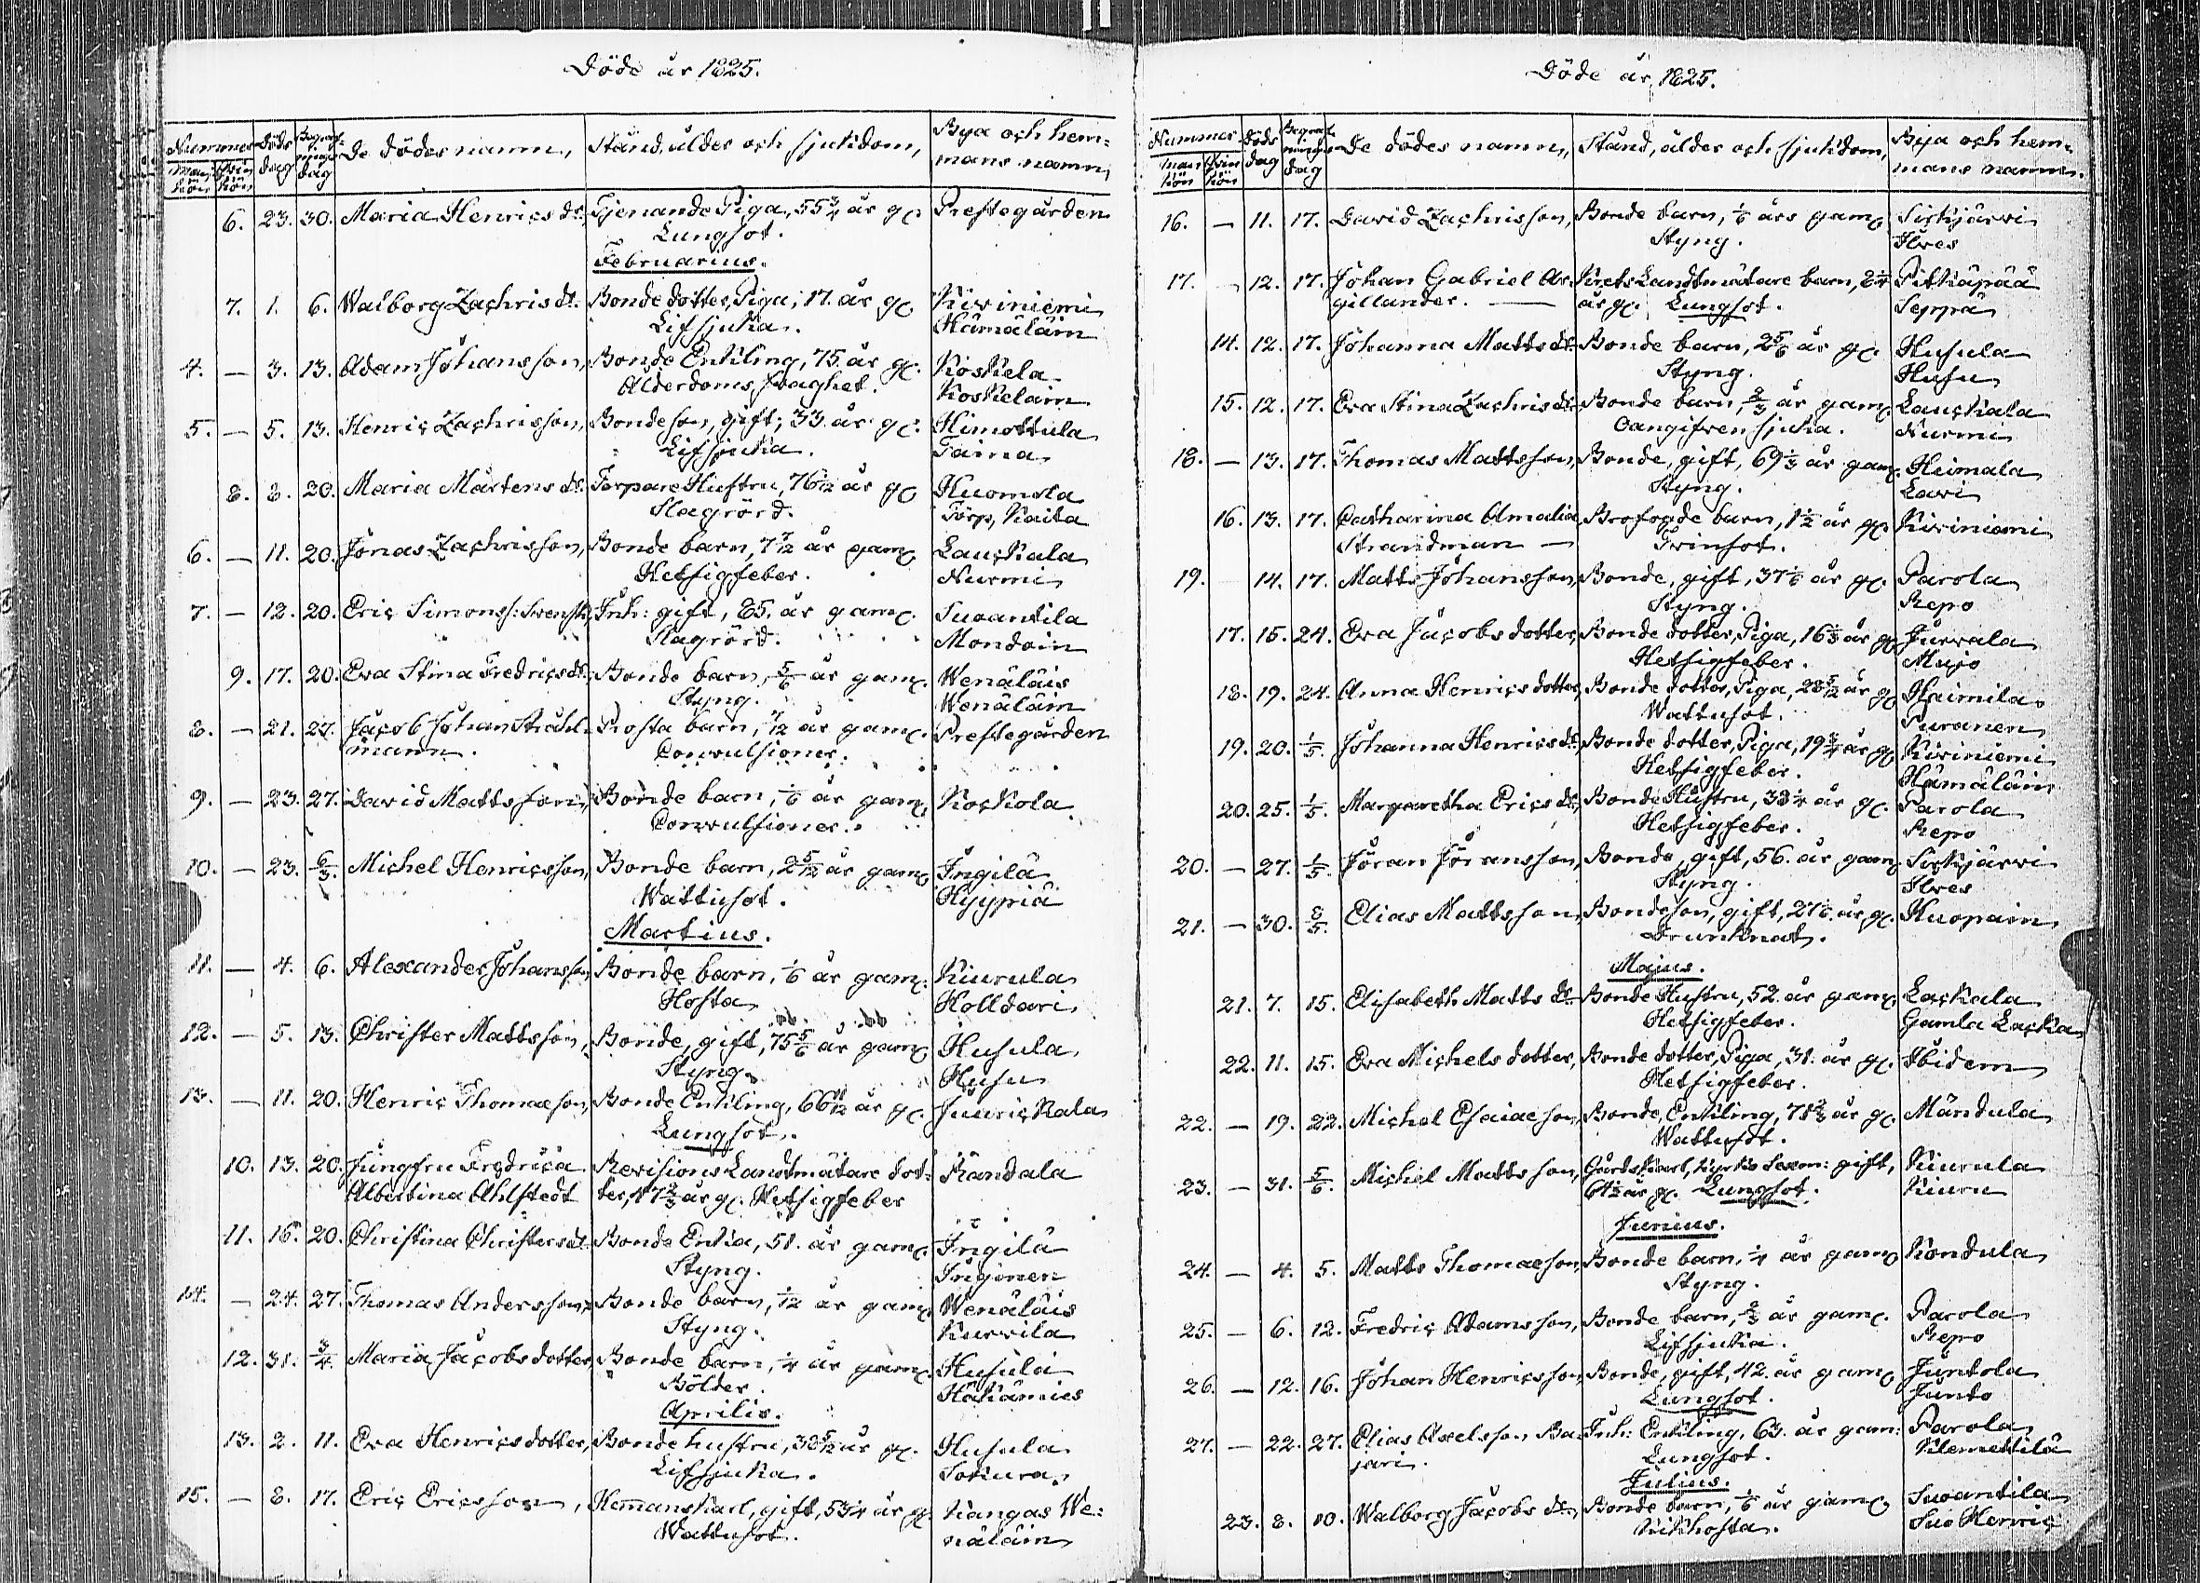 Döde år 1825.
Nummer Döds dag Begrafnings dag De dödes namn, Stånd, ålder och sjukdom, Bya och hem=
Man kön Qvin kön mans namn,
6. 23. 30. Maria Henrics dr. Tjenande Piga, 55 3/4 år gl. Prestegården
Lungsot.
Februarius.
7. 1. 6. Walborg Zachris dr. Bonde dotter, Piga, 17. år gl. Kiviniemi
Lifsjuka. Hämäläin
4. — 3. 13. Adam Johansson, Bonde Enkling, 75. år gl. Koskela
Ålderdoms svaghet. Koskelain
5. — 5. 13. Henric Zachrisson, Bondeson, gift, 33. år gl. Himottula
Lifsjuka. Taina
8. 8. 20. Maria Mårtens dr. Torpare Hustru, 76 1/12 år gl. Huomola
Slagrörd. Torp, Kaita
6. — 11. 20. Jonas Zachrisson, Bonde barn, 7 7/12 år gam. Lauckala
Hetsigfeber. Nurmi
7. — 12. 20. Eric Simons s: Svensk, Inh: gift, 85. år gam. Suoantila
Slagrörd. Mondoin
9. 17. 20. Eva Stina Fredrics dr. Bonde barn, 5/6 år gam. Wenäläis
Styng. Wenäläin
8. — 21. 27. Jacob Johan Stråhl- Prosta barn, 1/12 år gam. Prestegården
mann. Convulsioner.
9. — 23. 27. David Mattsson, Bonde barn, 1/6 år gam. Kockola
Convulsioner.
10. — 23. 6/3. Michel Henricsson, Bonde barn, 2 5/12 år gam. Ingilä
Wattusot. Hyypiä
Martius.
11. — 4. 6. Alexander Johansson Bonde barn, 1/6 år gam. Kiurula
Hosta Holldari
12. — 5. 13. Christer Mattsson, Bonde, gift, 75 5/6 år gam. Husula
Styng. Husu
13. — 11. 20. Henric Thomaeson, Bonde Enkling, 66 11/12 år gl. Juurickala
Lungsot.
10. 13. 20. Jungfru Fredrica Revisions Landtmätare dot- Randala
Albertina Ahlstedt ter, 17 2/3 år gl. Hetsigfeber
11. 16. 20. Christina Christers dr. Bonde Enka, 51. år gam. Ingilä
Styng. Inginen
14. — 24. 27. Thomas Andersson, Bonde barn, 1/12 år gam. Wenäläis
Styng. Kurvila
12. 31. 3/4. Maria Jacobs dotter, Bonde barn, 1/4 år gam. Husula
Bölder. Häkämies
Aprilis.
13. 2. 11. Eva Henrics dotter, Bonde hustru, 38 5/12 år gl. Husula
Lifsjuka. Sokura
15. — 8. 17. Eric Ericsson, Hemanskarl, gift, 53 1/4 år gl. Kangas We:
Wattusot. näläin
Döde år 1825.
Nummer Döds dag Begrafnings dag De dödes namn, Stånd, ålder och sjukdom, Bya och hem=
man kön Qvin kön mans namn.
16. — 11. 17. David Zachrisson, Bonde barn, 1/6 års gam. Sirkjärvi
Styng. Ilves
17. - 12. 17. Johan Gabriel Ar- Krets Landtmätare barn, 2 1/4 Pitkäpää
gillander. — år gl. Lungsot. Seppä
14. 12. 17. Johanna Matts dr. Bonde barn, 2 5/6 år gl. Husula
Styng. Husu
15. 12. 17. Eva Stina Zachris dr. Bonde barn, 2/3 år gam. Lauckala
Oangifven sjuka. Nurmi
18. — 13. 17. Thomas Mattsson, Bonde, gift, 69 1/3 år gam. Heimala
Styng. Lavi
16. 13. 17. Catharina Amalia Brofogde barn, 1 1/2 år gl. Kiviniemi
Strandman — Tvinsot.
19. 14. 17. Matts Johansson, Bonde, gift, 37 1/6 år gl. Parola
Styng. Repo
17. 15. 24. Eva Jacobs dotter, Bonde dotter, Piga, 16 1/3 år gl. Jurvala
Hetsigfeber. Mujo
18. 19. 24. Anna Henrics dotter, Bonde dotter, Piga, 28 5/12 år gl. Haimila
Wattusot. Puranen
19. 20. 1/5. Johanna Henrics dr. Bonde dotter, Piga, 19 3/4 år gl. Kiviniemi
Hetsigfeber. Hämäläin
20. 25. 1/5. Margaretha Erics dr. Bonde Hustru, 38 1/4 år gl. Parola
Hetsigfeber. Repo
20. — 27. 1/5. Jöran Jöransson, Bonde, gift, 56. år gam. Sirkjärvi
Styng. Ilves
21. — 30. 8/5. Elias Mattsson, Bondeson, gift, 27 1/6. år gl. Kuopain
Drunknat.
Majus.
21. 7. 15. Elisabeth Matts dr. Bonde Hustru, 52. år gam. Lackala
Hetsigfeber. Gamla Lacka
22. 11. 15. Eva Michels dotter, Bonde dotter, Piga, 31. år gl. Ibidem
Hetsigfeber.
22. — 19. 22. Michel Esaiaeson, Bonde, Enkling, 71 2/3 år gl. Mändula
Wattusot.
23. — 31. 5/6. Michel Mattsson, Gårdskarl, Kyrkio Sexm: gift, Kiurula
61 1/2 år gl. Lungsot. Kiuru
Junius.
24. — 4. 5. Matts Thomaeson, Bonde barn, 1/4 år gam. Kondula
Styng.
25. — 6. 12. Fredric Adamsson, Bonde barn, 2/3 år gam. Parola
Lifsjuka. Repo
26. — 12. 16. Johan Henricsson, Bonde, gift, 42. år gam. Juntola
Lungsot. Junto
27. — 22. 27. Elias Axelsson Ba- Inh: Enkling, 63. år gam: Parola
jari. Lungsot. Klemettilä
Julius.
23. 8. 10. Walborg Jacobs dr. Bonde barn, 1/6 år gam. Suoantila
Kikhosta. Suo Henric